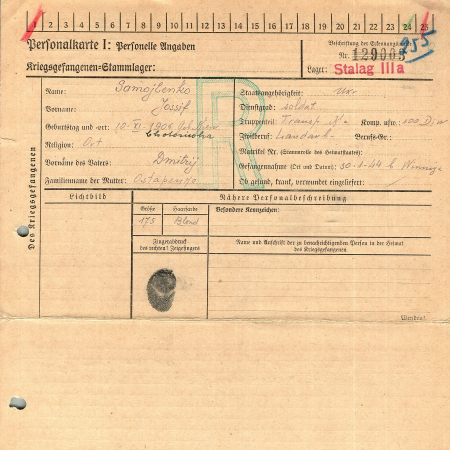 1 2 3 4 5 6 7 8 9 10 11 12 13 14 15 16 17 18 19 20 21 22 23 24 25
Personalkarte I: Personelle Angaben
Kriegsgefangenen-Stammlager:
Beschriftung der Erkennungsmarke
Nr. 129003
255
Lager: Stalag IIIa
R
Des Kriegsgefangenen
Name: Samojlenko
Vorname: Jossif
Geburtstag und -ort: 10.VI.1906 Geb. Kiew
Religion: Ort
Vorname des Vaters: Dmitrij
Familienname der Mutter: Ostapenko
Staatsangehörigkeit: Ukr
Dienstgrad: soldat
Truppenteil: Transp. Komp. usw.: 100 Div
Zivilberuf: Landarb. Berufs-Gr.:
Matrikel Nr. (Stammrolle des Heimatstaates):
Gefangennahme (Ort und Datum): 30-1-44 b
Ob gesund, krank, verwundet eingeliefert:
Lichtbild
Nähere Personalbeschreibung
Größe Haarfarbe Besondere Kennzeichen:
175 Blond
Fingerabdruck
des rechten! Zeigefingers
Name und Anschrift der zu benachrichtigenden Person in der Heimat
des Kriegsgefangenen:
Wenden!